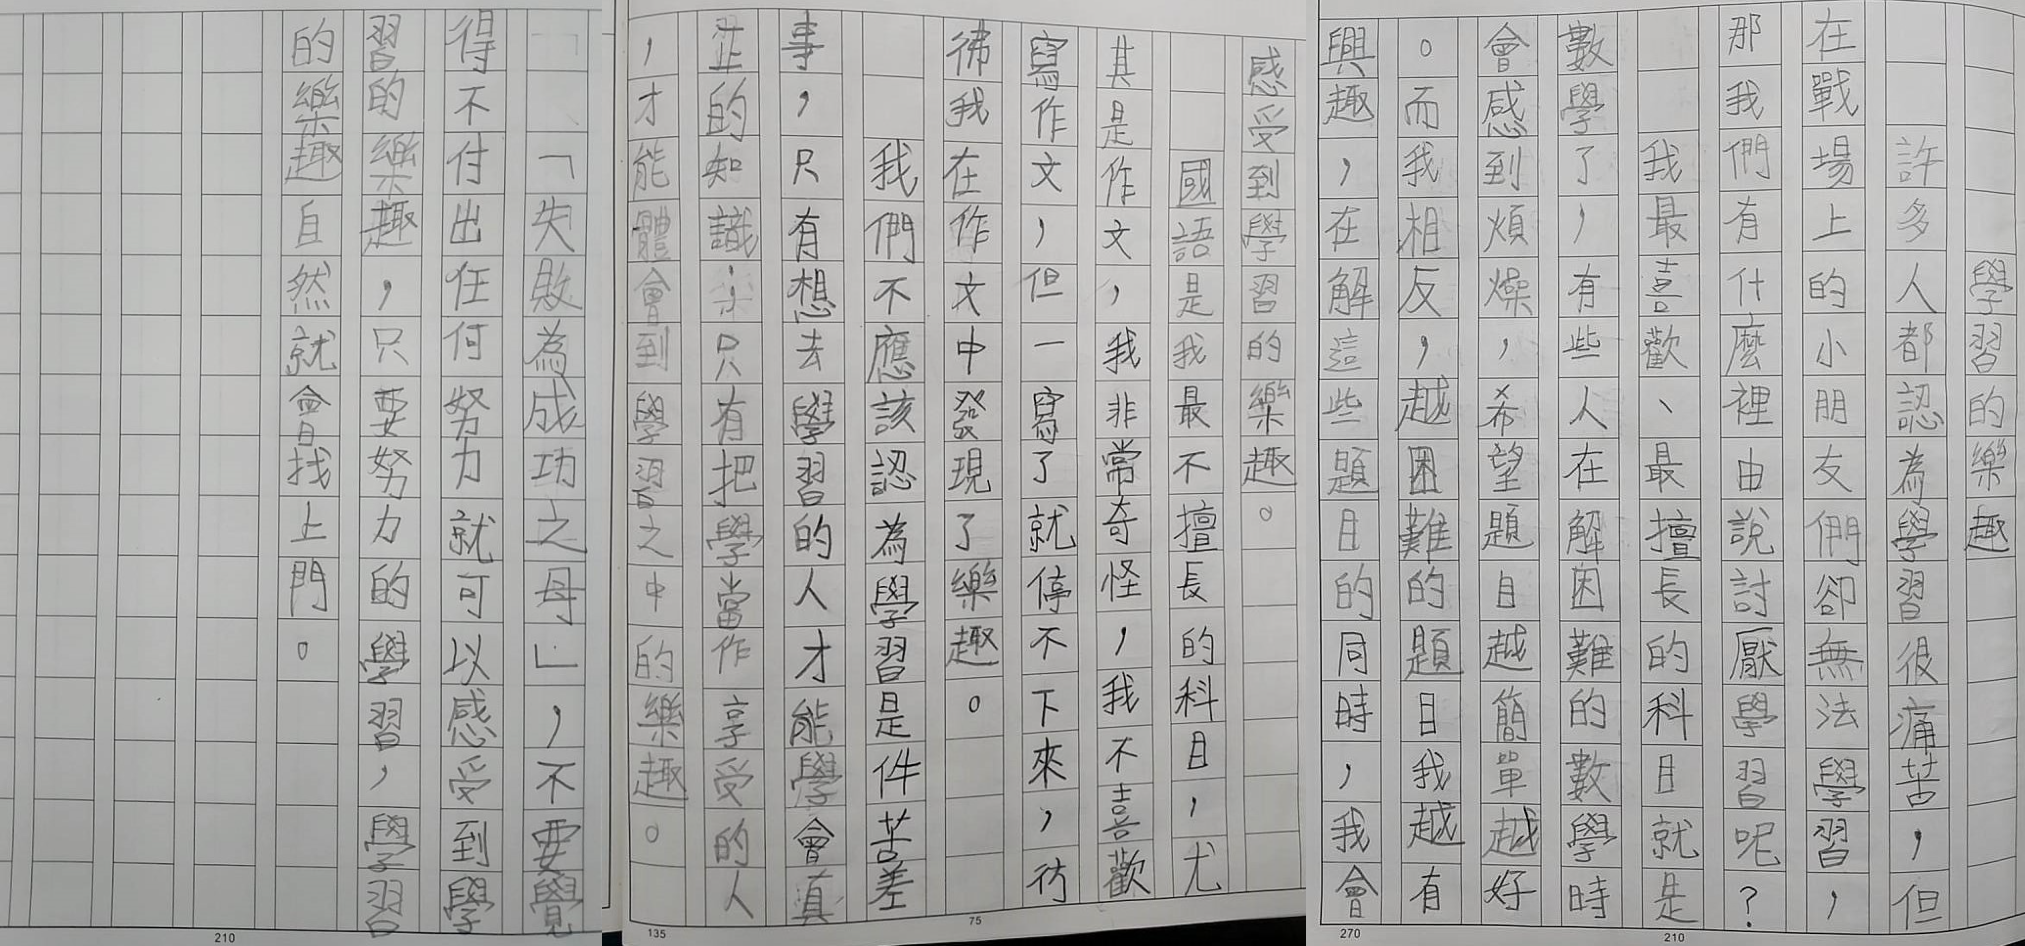 學習的樂趣
許多人都認為學習很痛苦，但
在戰場上的小朋友們卻無法學習，
那我們有什麼裡由說討厭學習呢？
我最喜歡、最擅長的科目就是
數學了，有些人在解困難的數學時
會感到煩燥，希望題目越簡單越好
。而我相反，越困難的題目我越有
興趣，在解這些題目的同時，我會
感受到學習的樂趣。
國語是我最不擅長的科目，尤
其是作文，我非常奇怪，我不喜歡
寫作文，但一寫了就停不下來，彷
彿我在作文中發現了樂趣。
我們不應該認為學習是件苦差
事，只有想去學習的人才能學會真
正的知識；只有把學當作享受的人
，才能體會到學習之中的樂趣。
「失敗為成功之母」，不要覺
得不付出任何努力就可以感受到學
習的樂趣，只要努力的學習，學習
的樂趣自然就會找上門。
210
135
75
270
210